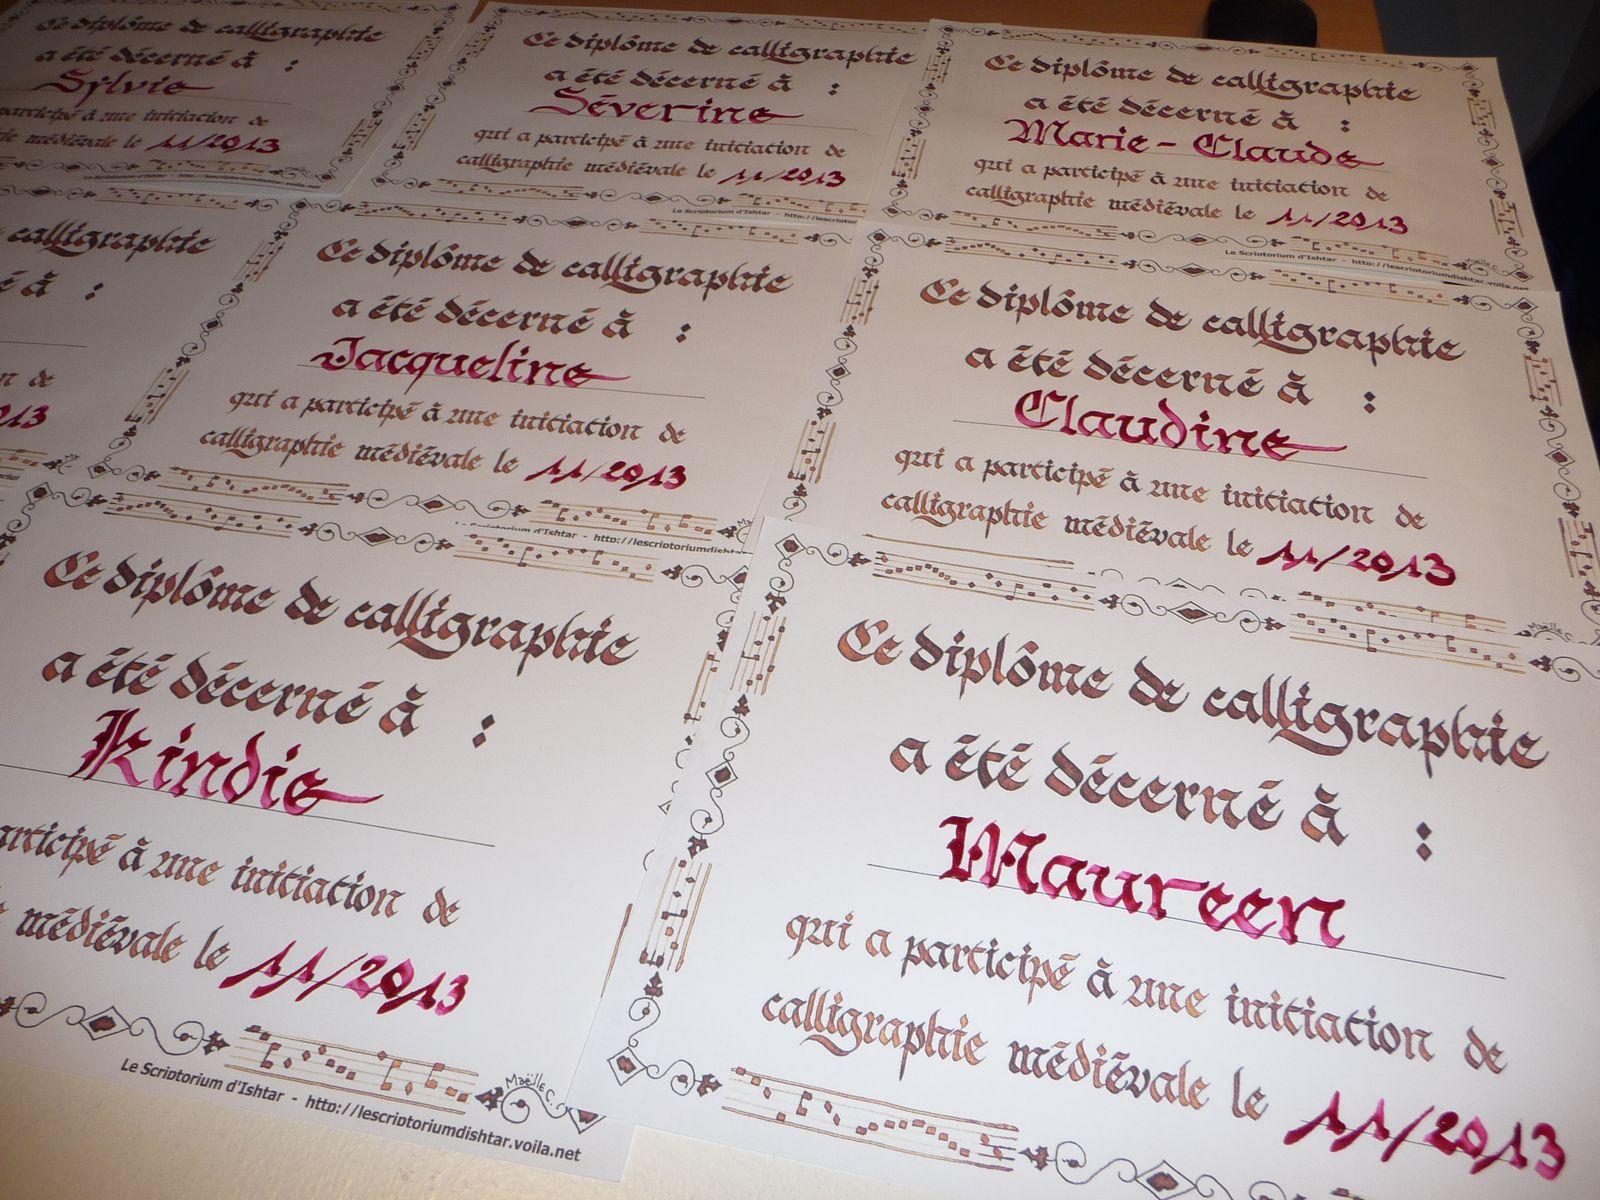 Ce diplôme de calligraphie
a été décerné à :
Sylvie
participé à une initiation de
médiévale le 11/2013
http://lescriptoriumdishtar.voila.net
Ce diplôme de calligraphie
a été décerné à :
Séverine
qui a participé à une initiation de
calligraphie médiévale le 11/2013
Le Scriptorium d'Ishtar - http://lescriptor
Ce diplôme de calligraphie
a été décerné à :
Marie-Claude
qui a participé à une initiation de
calligraphie médiévale le 11/2013
Maëlle C.
Le Scriptorium d'Ishtar - http://lescriptoriumdishtar.voila.net
calligraphie
à :
de
Ce diplôme de calligraphie
a été décerné à :
Jacqueline
qui a participé à une initiation de
calligraphie médiévale le 11/2013
Scriptorium d'Ishtar - http://lescriptoriumdisht
Ce diplôme de calligraphie
a été décerné à :
Claudine
qui a participé à une initiation de
calligraphie médiévale le 11/2013
Maëlle C.
Ce diplôme de calligraphie
a été décerné à :
Kindie
participé à une initiation de
médiévale le 11/2013
Maëlle C.
Le Scriptorium d'Ishtar - http://lescriptoriumdishtar.voila.net
Ce diplôme de calligraphie
a été décerné à :
Maureen
qui a participé à une initiation de
calligraphie médiévale le 11/2013